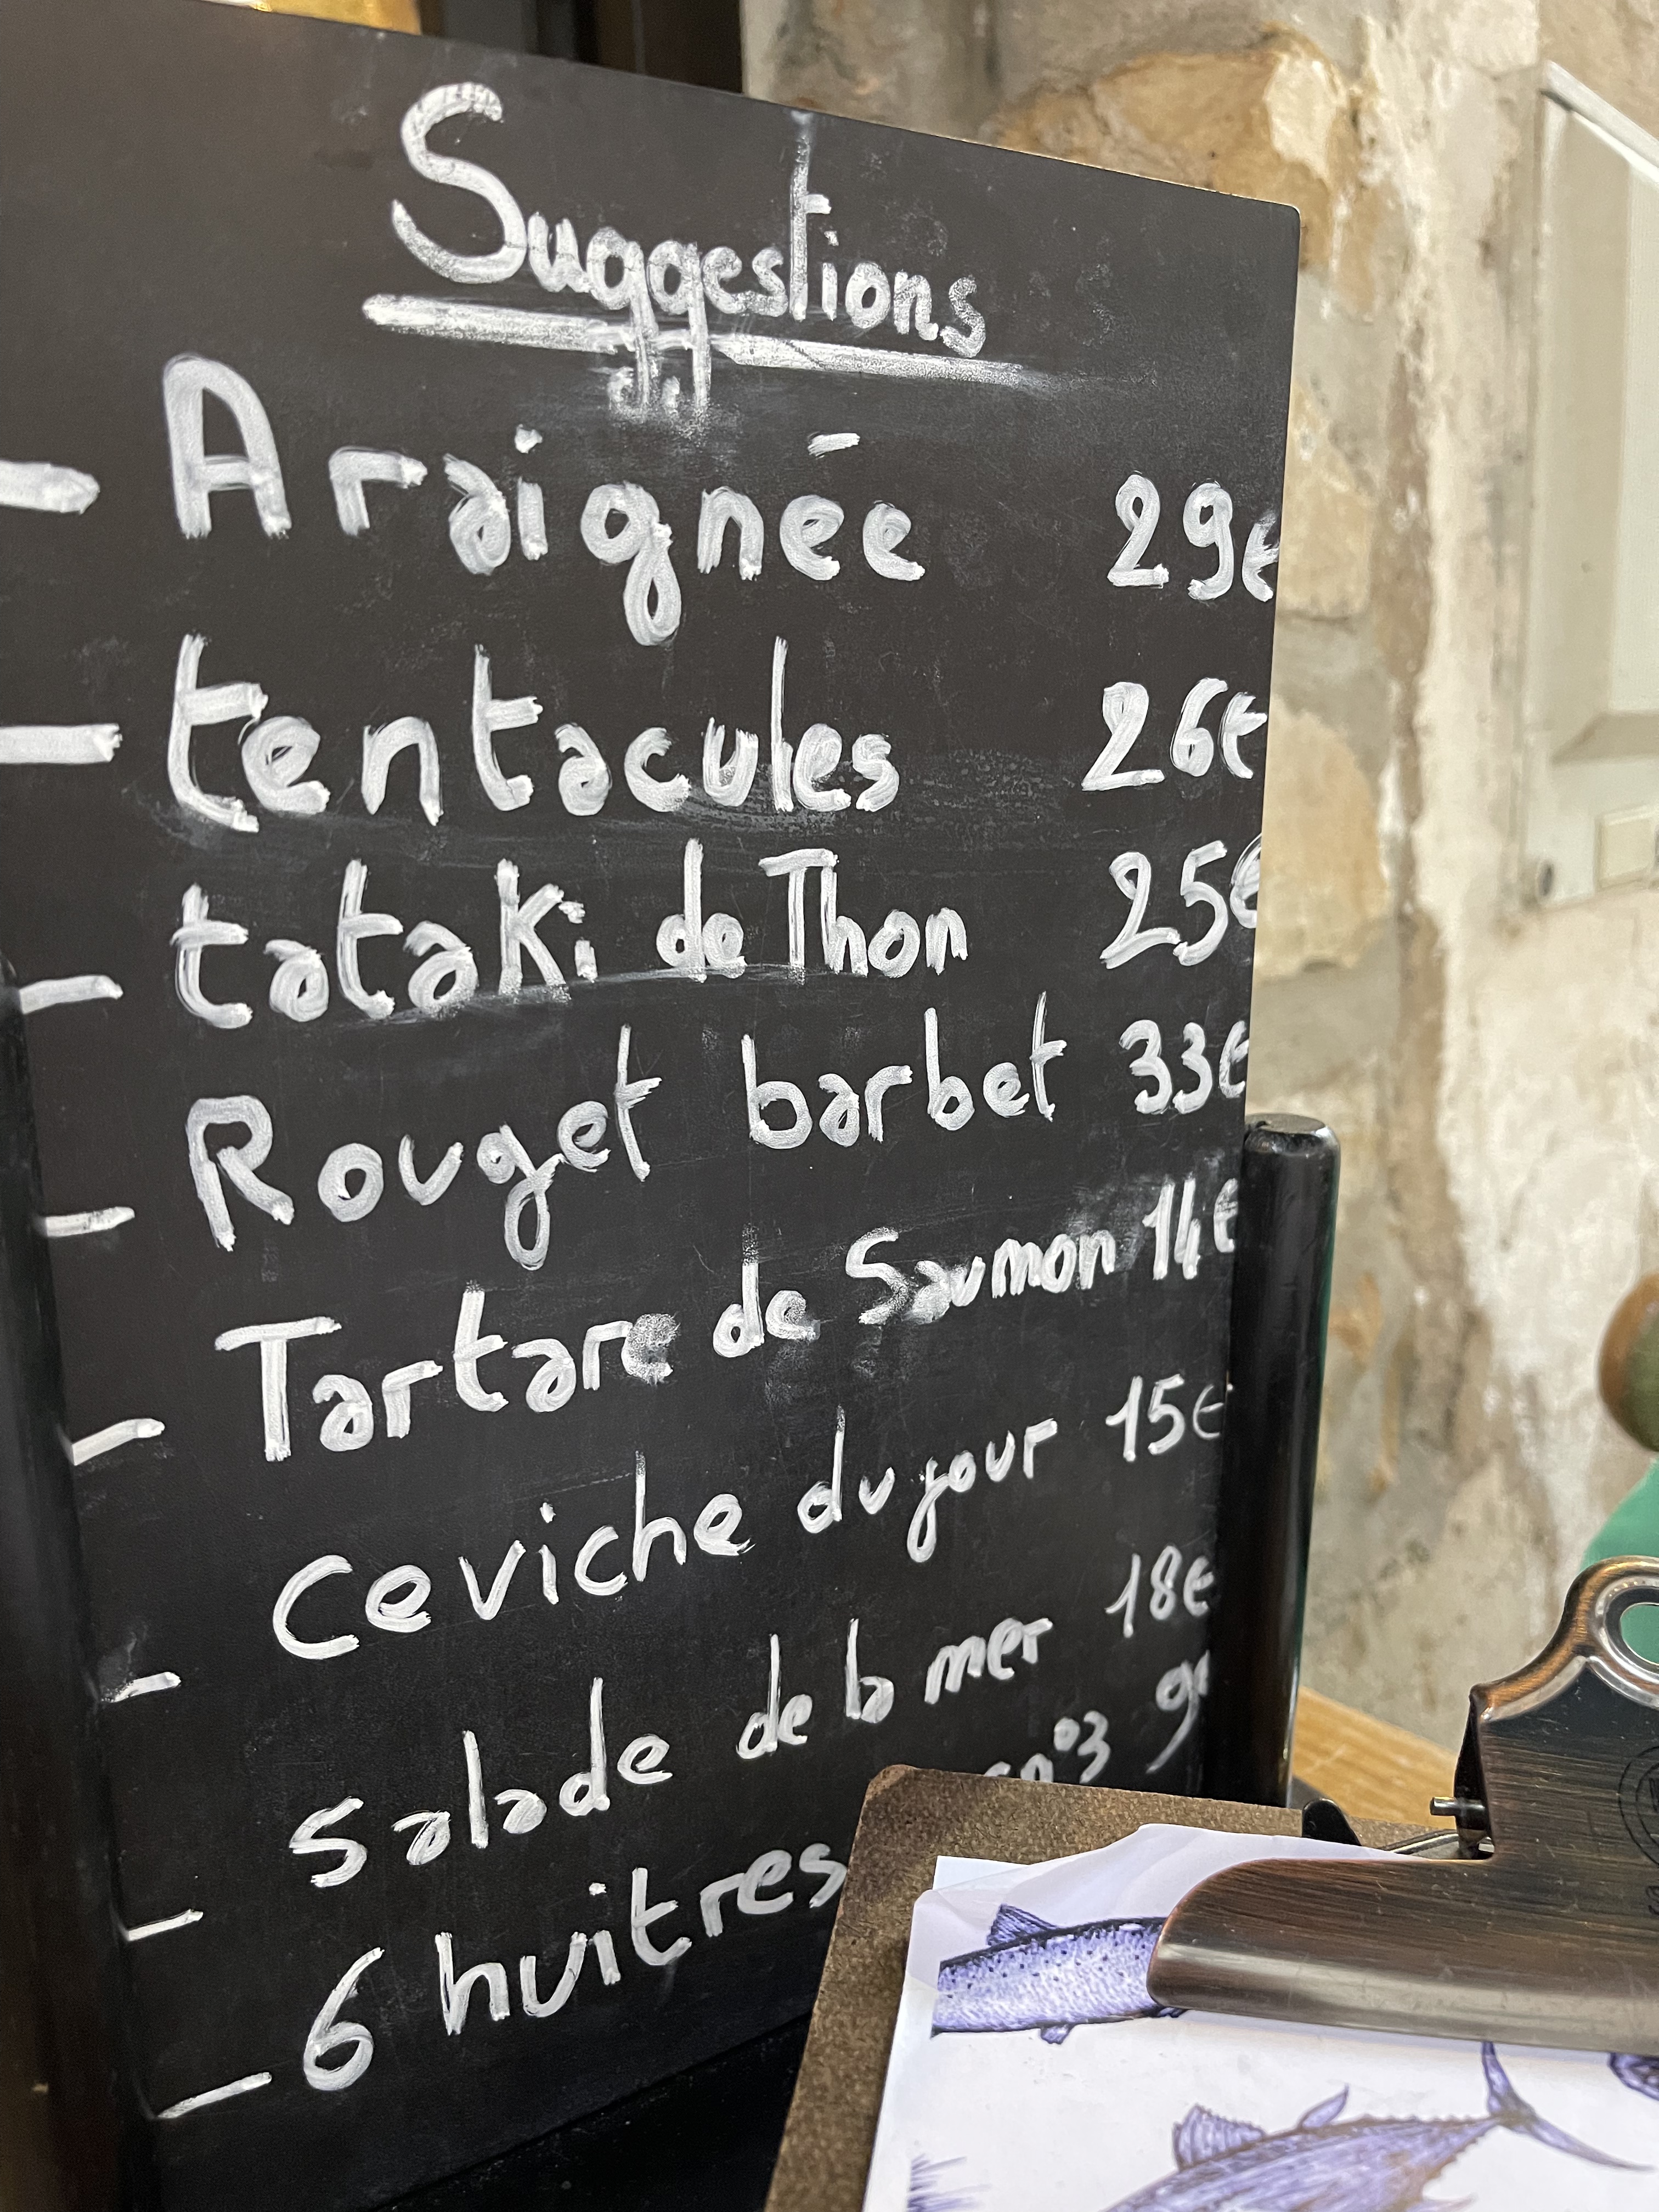 Suggestions
- Araignée 29€
- tentacules 26€
- tataki de Thon 25€
- Rouget barbet 33€
- Tartare de Saumon 14€
- Ceviche du jour 15€
- Salade de la mer 18€
- 6 huitres n°3 9